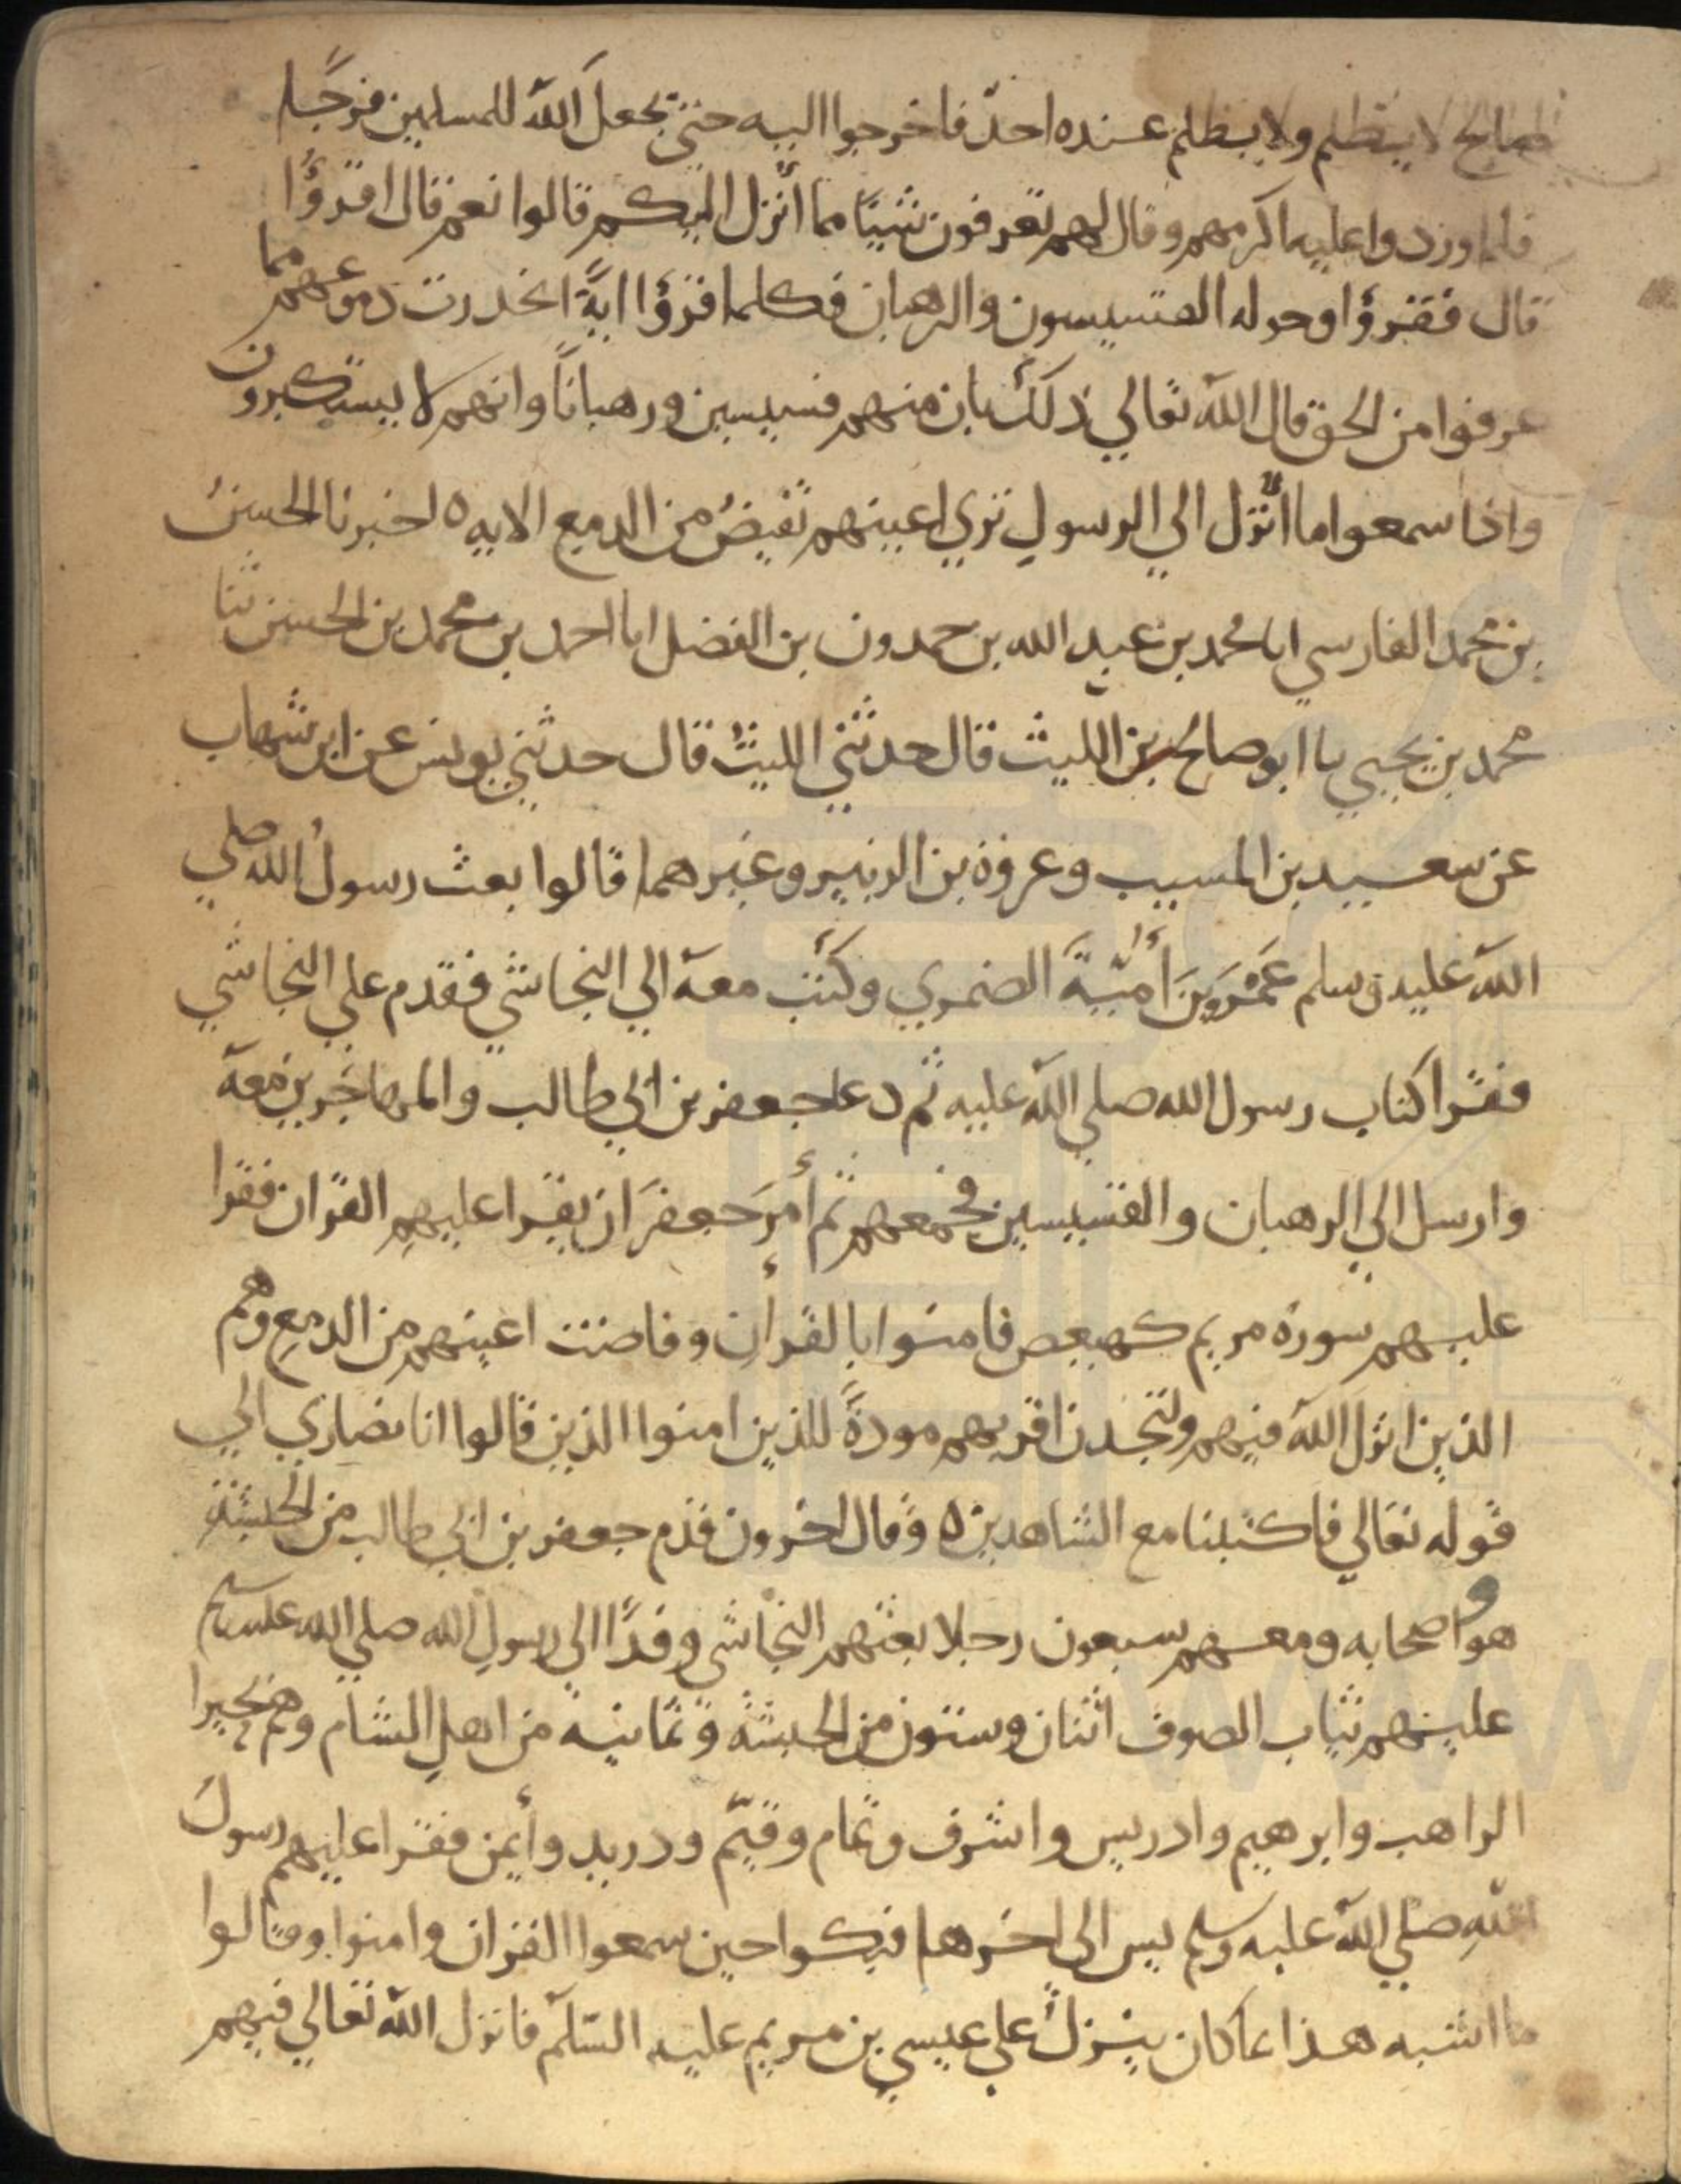 صالح لا يظلم ولا يظلم عنده احدٌ فاخرجوا اليه حتى يجعل الله للمسلمين فرجًا
فلما وردوا عليه اكرمهم وقال لهم تعرفون شيئًا مما اُنزل اليكم قالوا نعم قال اقرؤُا
قال فقرؤا وحوله القسيسون والرهبان فكلما قرؤا ايةً انحدرت دموعهم مما
عرفوا من الحق قال الله تعالي ذلك بان منهم قسيسين ورهبانًا وانهم لا يستكبرون
واذا سمعوا ما اُنزل الي الرسولِ تري اعينهم تفيضُ من الدمع الايه ٥ اخبرنا الحسنُ
بن محمد الفارسي ابا محمد بن عبد الله بن حمدون بن الفضل ابا احمد بن محمد بن الحسن ثنا
محمد بن يحيي با ابو صالح بن الليث قال حدثني الليثُ قال حدثني يونس عن ابن شهاب
عن سعيد بن المسيب وعروة بن الزبير وغيرهما قالوا بعث رسولُ الله صلي
الله عليه وسلم عَمْرَوبنَ اُميّةَ الضمري وكتب معه الي النجاشي فقدم علي النجاشي
فقرا كتاب رسول الله صلي الله عليه ثم دعا جعفر بن ابي طالب والمهاجرين معه
وارسل الي الرهبان والقسيسين فجمعهم ثم أمرَ جعفرَ ان يقرا عليهم القران فقرا
عليهم سورة مريم كهيعص فامنوا بالقرأن وفاضت اعينهم من الدمع وهم
الذين انزل الله فيهم ولتجدن اقربهم مودةً للذين امنوا الذين قالوا انا نصاري الي
قوله تعالي فاكتبنا مع الشاهدين ٥ وقال اخرون قدم جعفر بن ابي طالب من الحبشة
هو واصحابه ومعهم سبعون رجلا بعثهم النجاشي وفدًا الي رسول الله صلي الله عليه وسلم
عليهم ثياب الصوف اثنان وستون من الحبشة وثمانية من اهل الشام وهم بحيرا
الراهب وابرهيم وادريس واشرف وتمام وقيّم ودريد وأيمن فقرا عليهم رسول
اللهِ صلي الله عليه وسلم يس الى اخرها فبكوا حين سمعوا القران وامنوا وقالوا
ما اشبه هذا بما كان ينزلُ علي عيسي بن مريم عليه السّلام فانزل الله تعالي فيهم